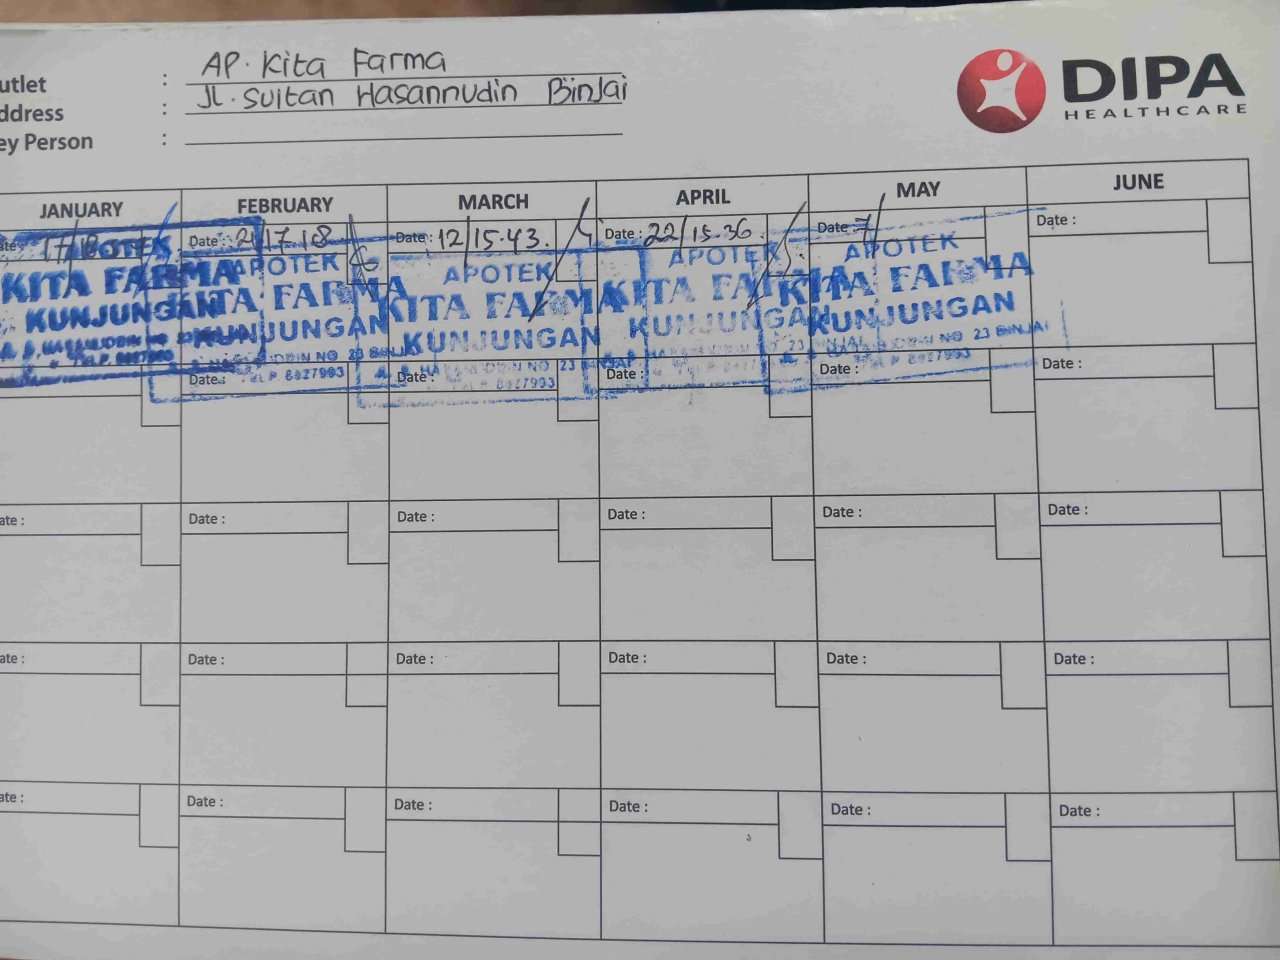 utlet : AP. Kita Farma
ddress : Jl. Sultan Hasannudin Binjai
ey Person :
DIPA
HEALTHCARE
JANUARY FEBRUARY MARCH APRIL MAY JUNE
ate: 17/ Date: 21/17.18 Date: 12/15.43. Date: 22/15.36. Date: 7/ Date :
APOTEK APOTEK APOTEK APOTEK APOTEK
KITA FARMA KITA FARMA KITA FARMA KITA FARMA KITA FARMA
KUNJUNGAN KUNJUNGAN KUNJUNGAN KUNJUNGAN KUNJUNGAN
NO 23 BINJAI NO 23 BINJAI 23 NO 23 BINJAI
TELP. 8827993 TELP 8827993 8827993 8827993
Date: Date: Date: Date: Date :
ate : Date : Date : Date : Date : Date :
ate : Date : Date : Date : Date : Date :
ate : Date : Date : Date : Date : Date :